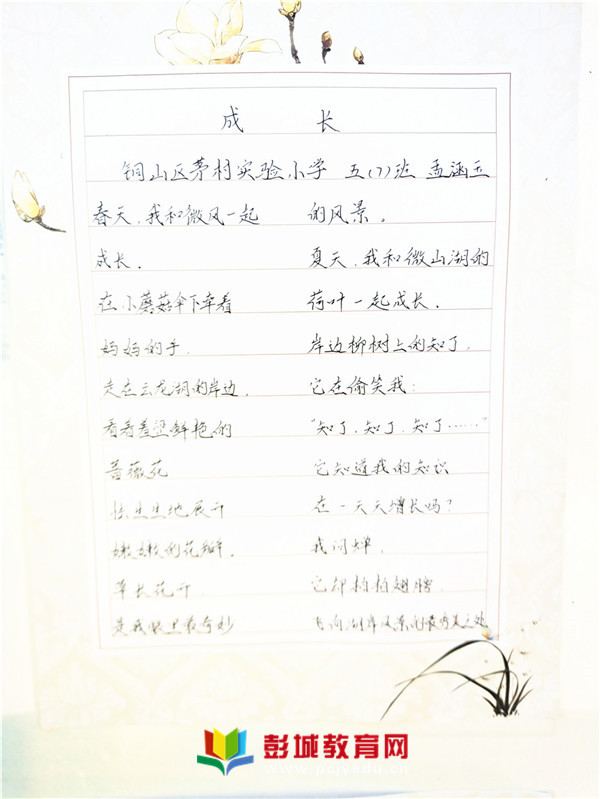 成 长
铜山区茅村实验小学 五(7)班 孟涵玉
春天,我和微风一起
成长.
在小蘑菇伞下牵着
妈妈的手.
走在云龙湖的岸边.
看着羞涩鲜艳的
蔷薇花
怯生生地展开
嫩嫩的花瓣.
草长花开.
是我眼里最奇妙
的风景。
夏天,我和微山湖的
荷叶一起成长.
岸边柳树上的知了.
它在偷笑我:
"知了.知了.知了……"
它知道我的知识
在一天天增长吗?
我问蝉.
它却拍拍翅膀.
飞向湖岸风景的最
彭城教育网